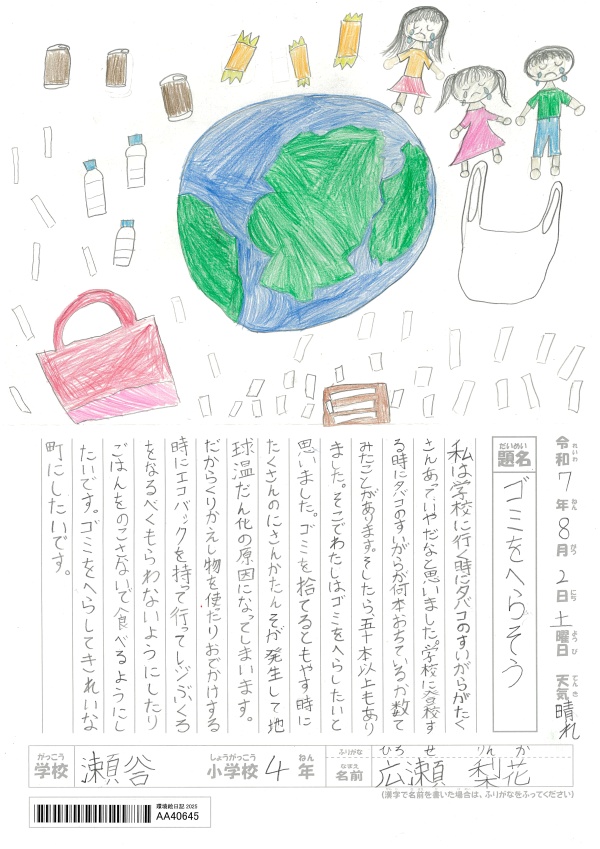 令和7年8月2日土曜日 天気晴れ
れいわ ねん がつ にち ようび てんき
題名 ゴミをへらそう
だいめい
私は学校に行く時にタバコのすいがらがたく
さんあっていやだなと思いました。学校に登校す
る時にタバコのすいがらが何本おちているか数て
みたことがあります。そしたら、五十本以上もあり
ました。そこでわたしはゴミをへらしたいと
思いました。ゴミを捨てるともやす時に
たくさんのにさんかたんそが発生して地
球温だん化の原因になってしまいます。
だからくりかえし物を使だりおでかけする
時にエコバックを持って行ってレジぶくろ
をなるべくもらわないようにしたり
ごはんをのこさないで食べるようにし
たいです。ゴミをへらしてきれいな
町にしたいです。
がっこう しょうがっこう ねん ふりがな ひろせ りんか
学校 瀬谷 小学校 4年 なまえ 名前 広瀬 梨花
(漢字で名前を書いた場合は、ふりがなをふってください)
環境絵日記 2025
AA40645